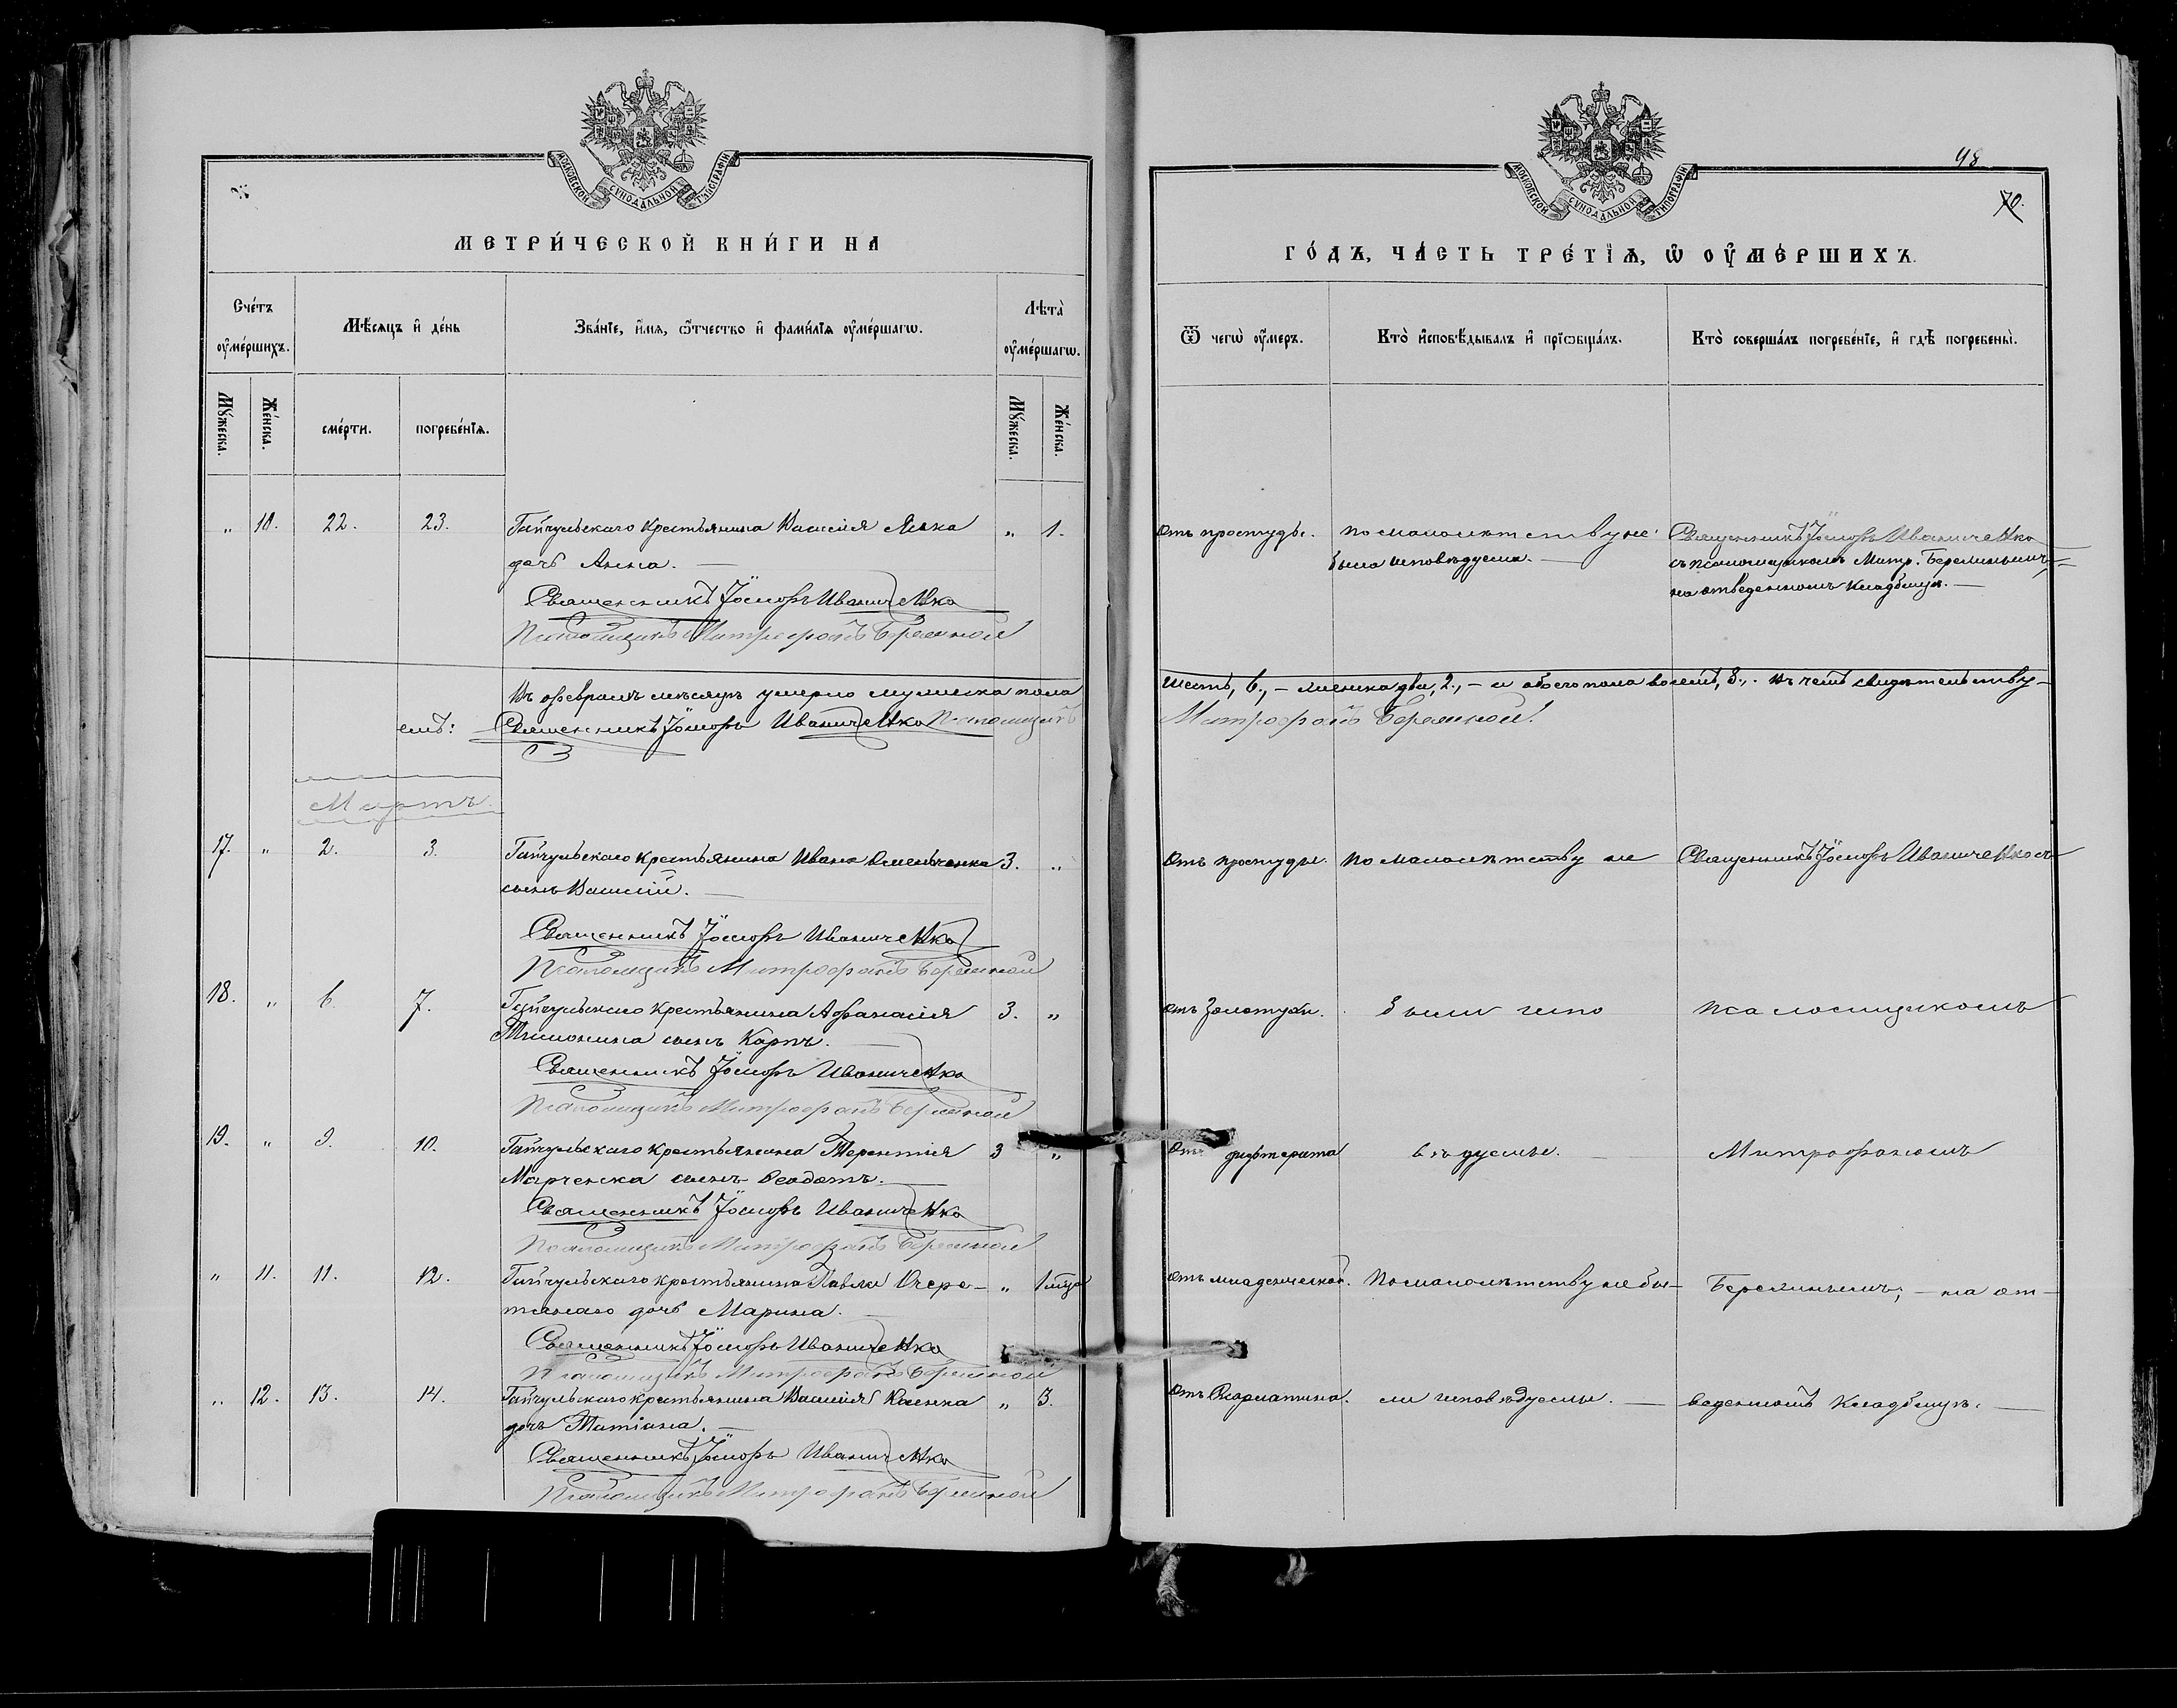 МОСКОВСКОЙ СѴНОДАЛЬНОЙ ТИПОГРАФІИ
МЕТРИ́ЧЕСКОЙ КНИ́ГИ НА
Сче́тъ ᲂу҆ме́ршихъ.
Мѣ́сяцъ и҆ де́нь
Зва́нїе, и҆́мѧ, ѻ҆́тчество и҆ фами́лїѧ ᲂу҆ме́ршагѡ.
Лѣта̀ ᲂу҆ме́ршагѡ.
Мꙋ́жеска.
Же́нска.
сме́рти.
погребе́нїѧ.
Мꙋ́жеска.
Же́нска.
„ 10. 22. 23. Гайчульскаго крестьянина Василія „ 1.
дочь Анна. —
Священникъ Іосифъ Иваниченко
Псаломщикъ Митрофанъ Бережной
Въ февралѣ мѣсяцѣ умерло мужеска пола
емъ: Священникъ Іосифъ Иваниченко Псаломщикъ
Мартъ.
17. „ 2. 3. Гайчульскаго крестьянина Ивана Омельченка 3. „
сынъ Василій. —
Священникъ Іосифъ Иваниченко
Псаломщикъ Митрофанъ Бережной
18. „ 6. 7. Гайчульскаго крестьянина Афанасія 3. „
сынъ Карпъ. —
Священникъ Іосифъ Иваниченко
Псаломщикъ Митрофанъ Бережной
19. „ 9. 10. Гайчульскаго крестьянина Терентія 3 „
Марченка сынъ Ѳеодотъ. —
Священникъ Іосифъ Иваниченко
Псаломщикъ Митрофанъ Бережной
„ 11. 11. 12. Гайчульскаго крестьянина Павла Очере- „ 1 мѣс
тянаго дочь Марина. —
Священникъ Іосифъ Иваниченко
Псаломщикъ Митрофанъ Бережной
„ 12. 13. 14. Гайчульскаго крестьянина Василія „ 3.
дочь Татіана. —
Священникъ Іосифъ Иваниченко
Псаломщикъ Митрофанъ Бережной
48
70.
МОСКОВСКОЙ СѴНОДАЛЬНОЙ ТИПОГРАФІИ
ГО́ДЪ, ЧА́СТЬ ТРЕ́ТЇѦ, Ѡ҆ ᲂУ҆МЕ́РШИХЪ.
Ѿ чегѡ̀ ᲂу҆́меръ.
Кто̀ и҆сповѣ́дывалъ и҆ прїѡбща́лъ.
Кто̀ соверша́лъ погребе́нїе, и҆ гдѣ̀ погребены̀.
Отъ простуды. По малолѣтству не Священникъ Іосифъ Иваниченко
была исповѣдуема. — съ псаломщикомъ Митр. Бережнымъ,
на отведенномъ кладбищѣ. —
шесть, 6., – женска два, 2., – и обоего пола восемь, 8., – въ чемъ свидѣтельству-
Митрофанъ Бережной.
Отъ простуды. По малолѣтству не Священникъ Іосифъ Иваниченко съ
отъ золотухи. были испо псаломщикомъ
Отъ дифтерита вѣдуемы. — Митрофаномъ
отъ младенческой. По малолѣтству не бы- Бережнымъ, – на от-
отъ Скарлатина. ли исповѣдуемы. — веденномъ кладбищѣ. —